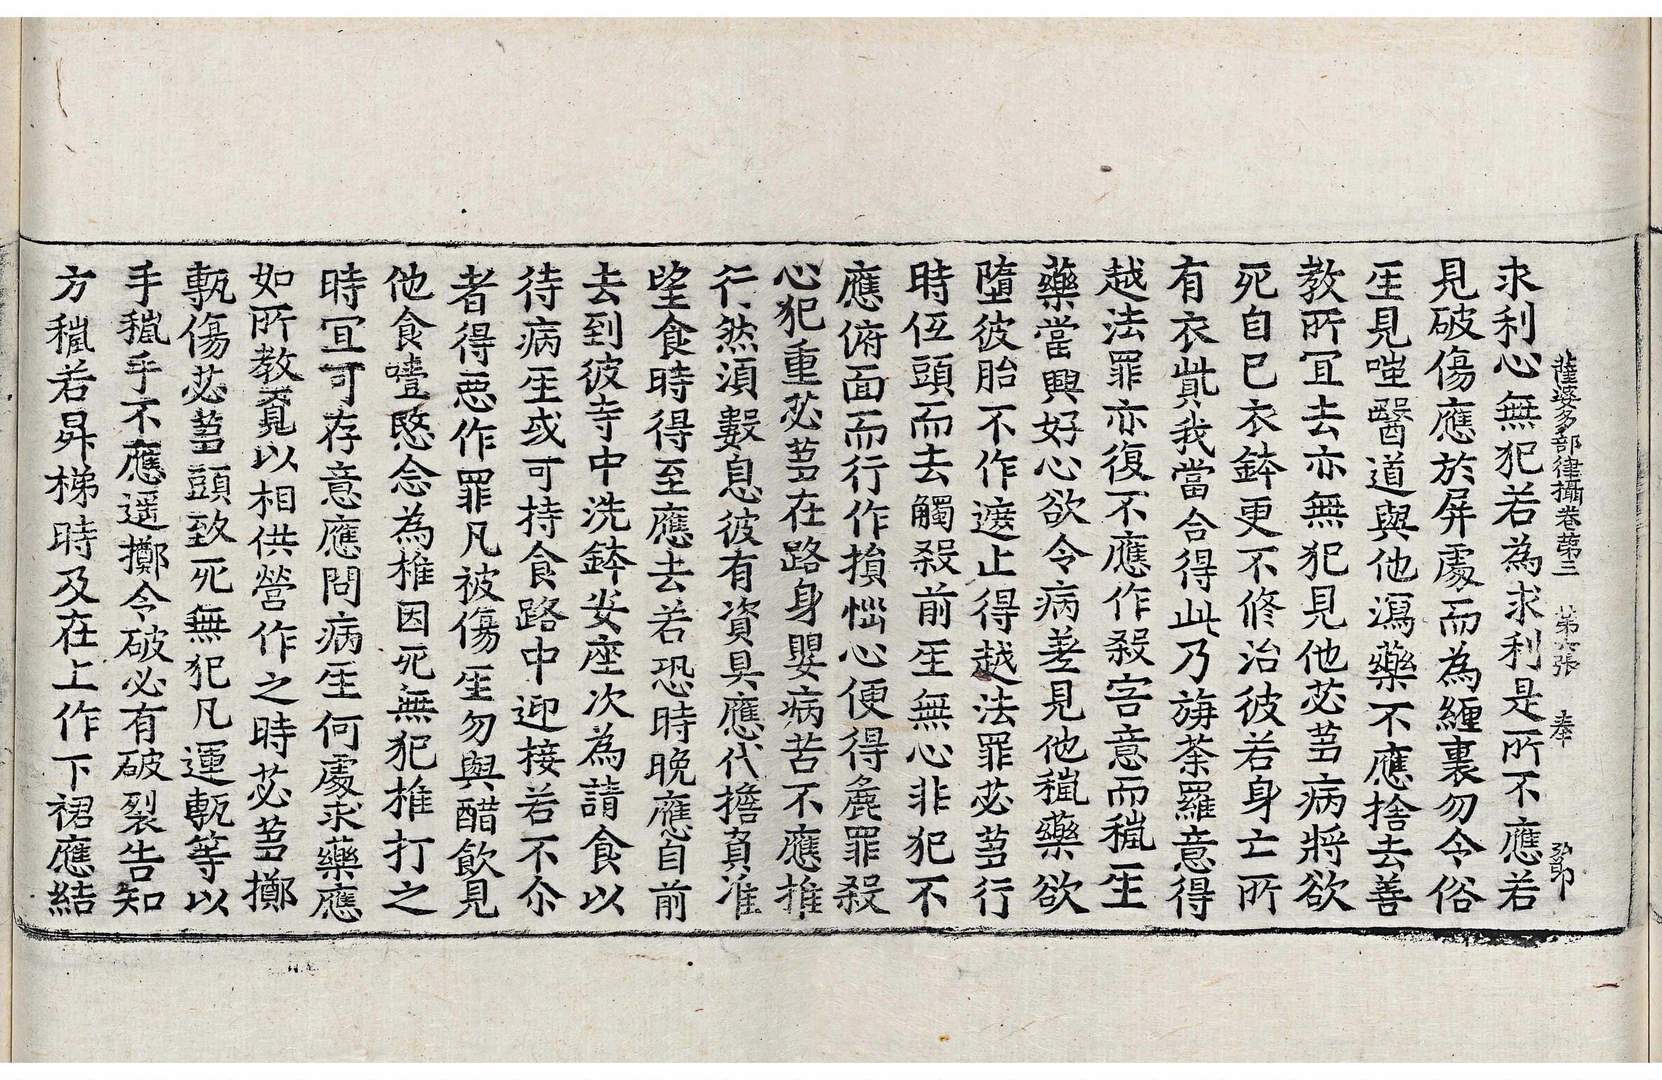 薩婆多部律攝卷苐三　苐六張　奉　孫昂
求利心無犯若為求利是所不應若
見破傷應於屏處而為纏裹勿令俗
生見嗤醫道與他瀉藥不應捨去善
教所冝去亦無犯見他苾蒭病將欲
死自巳衣鉢更不修治彼若身亡所
有衣貲我當合得此乃旃荼羅意得
越法罪亦復不應作殺害意而䖍生
藥當興好心欲令病差見他䖍藥欲
墮彼胎不作遮止得越法罪苾蒭行
時伍頭而去觸殺前生無心非犯不
應俯面而行作損惱心便得麁罪殺
心犯重苾蒭在路身嬰病苦不應推
行然湏數息彼有資具應代擔負准
望食時得至應去若恐時晚應自前
去到彼寺中洗鉢安座次為請食以
待病生或可持食路中迎接若不尒
者得惡作罪凡被傷生勿與醋飲見
他食噎愍念為椎因死無犯推打之
時冝可存意應問病生何處求藥應
如所教覓以相供營作之時苾蒭擲
甎傷苾蒭頭致死無犯凡運甎等以
手䖍手不應遥擲令破必有破裂告知
方䖍若昇梯時及在上作下裙應結